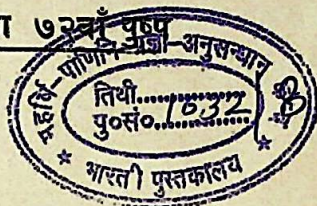 ७२वाँ पुष्प
महर्षि-पाणिनि-प्रज्ञा-अनुसन्धान
तिथी..............
पु०सं०...1032...
* भारती पुस्तकालय *